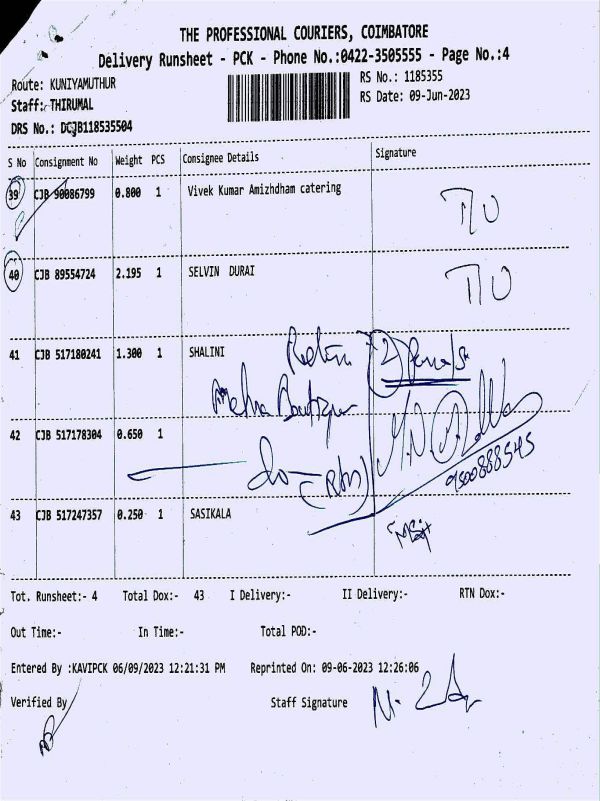 THE PROFESSIONAL COURIERS, COIMBATORE
Delivery Runsheet - PCK - Phone No.:0422-3505555 - Page No.:4
Route: KUNIYAMUTHUR
RS No.: 1185355
Staff: THIRUMAL
RS Date: 09-Jun-2023
DRS No.: DCJB118535504
S No Consignment No Weight PCS Consignee Details Signature
39 CJB 90086799 0.800 1 Vivek Kumar Amizhdham catering
40 CJB 89554724 2.195 1 SELVIN DURAI
41 CJB 517180241 1.300 1 SHALINI
42 CJB 517178304 0.650 1
do
9500888545
43 CJB 517247357 0.250 1 SASIKALA
Tot. Runsheet:- 4 Total Dox:- 43 I Delivery:- II Delivery:- RTN Dox:-
Out Time:- In Time:- Total POD:-
Entered By :KAVIPCK 06/09/2023 12:21:31 PM Reprinted On: 09-06-2023 12:26:06
Verified By Staff Signature